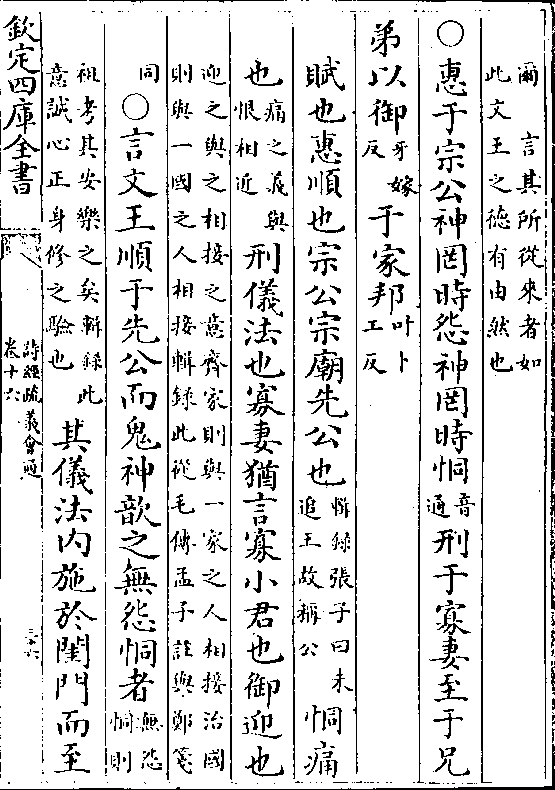 爾　言其所從來者如
此文王之德有由然也
○惠于宗公神罔時怨神罔時恫音通刑于寡妻至于兄
弟以御牙嫁反于家邦叶卜工反
賦也惠順也宗公宗廟先公也輯録張子曰未追王故稱公　恫痛
也痛之義與恨相近　刑儀法也寡妻猶言寡小君也御迎也
迎之與之相接之意齊家則與一家之人相接治國
則與一國之人相接輯録此從毛傳孟子註與鄭箋
同○言文王順于先公而鬼神歆之無怨恫者無怨恫則
祖考其安樂之矣輯録此
意誠心正身修之驗也　其儀法内施於閨門而至
欽定四庫全書
詩經疏義會通
卷十六
三六